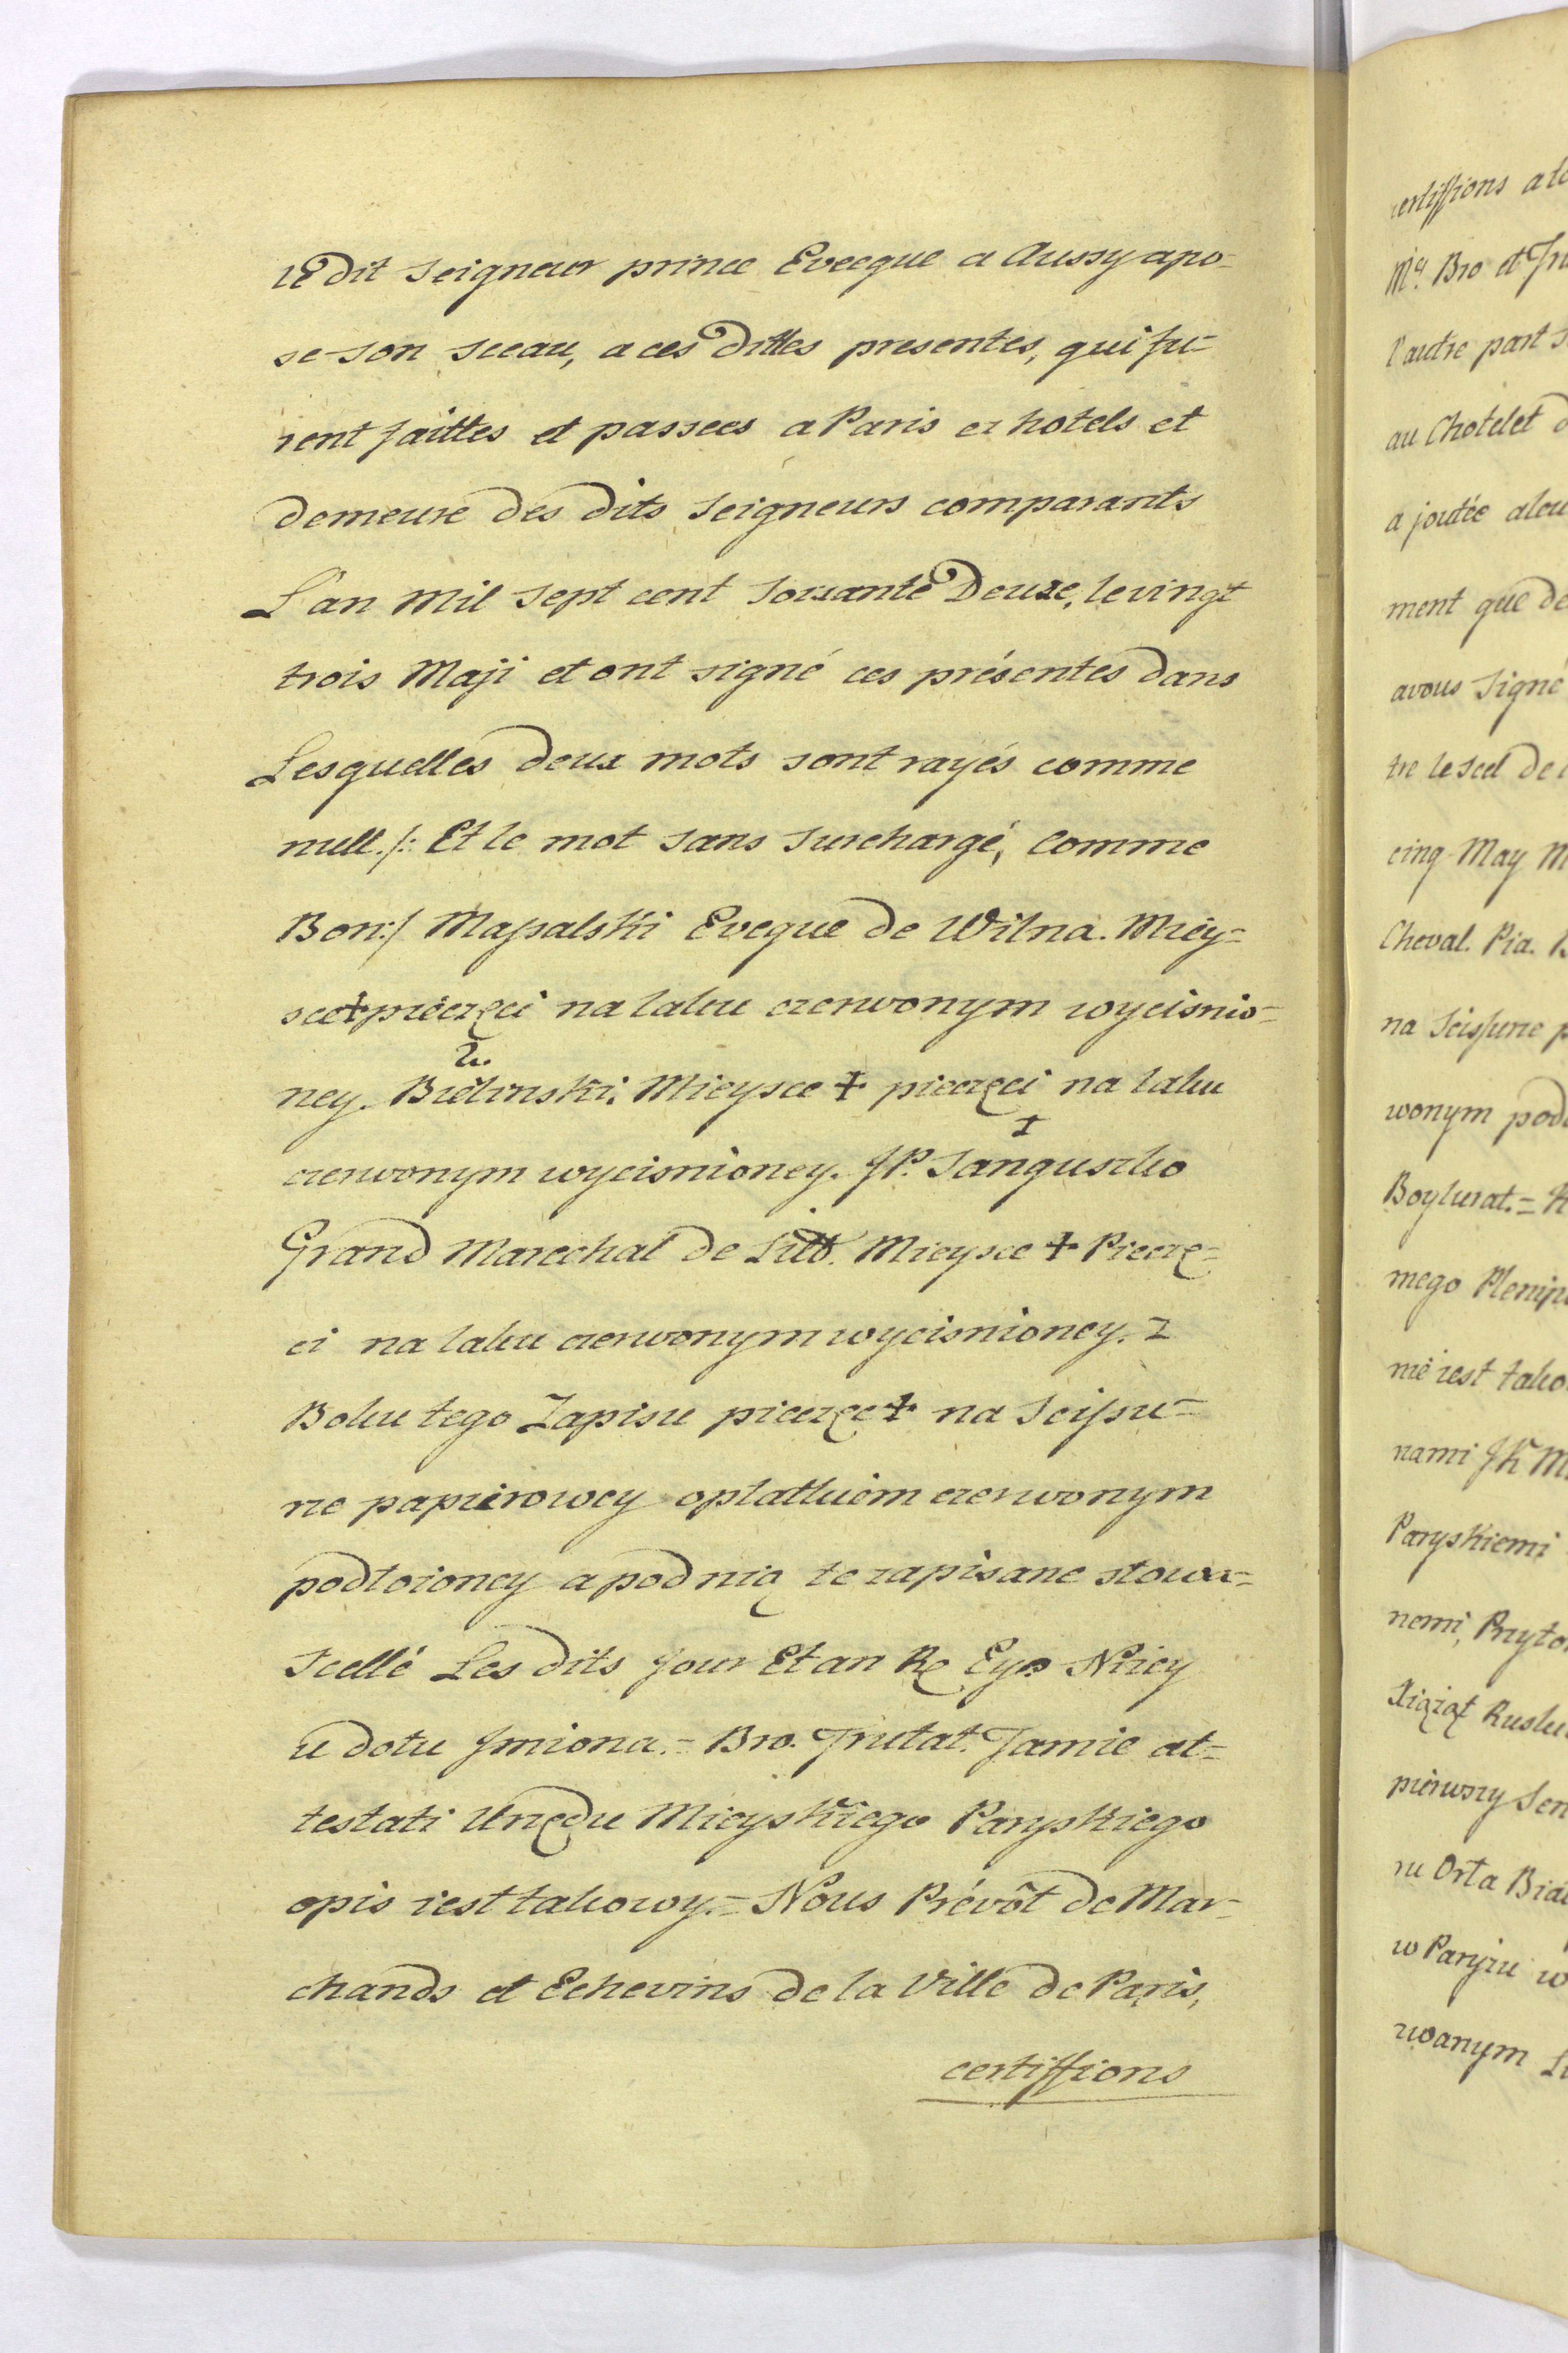 le dit Seigneur prince Evecque a Aussy apo-
se son sceau, a ces dittes presentes, qui fu=
rent faittes et passees a Paris ez hotels et
demeure des dits Seigneurs comparants
L'an Mil Sept cent Soixante Deuxe, le vingt
trois Maji et ont signé ces présentes dans
Lesquelles deux mots sont rayés comme
null. /: Et le mot sans Surchargé, Comme
Bon:/ Massalski Eveque de Wilna. Miey=
sce + pieczęci na laku czerwonym wycisnio=
ney. Bielinski. Mieysce + pieczęci na laku
czerwonym wycisnioney. JP. Sanguszko
Grand Marechal de Litt. Mieysce + Pieczę=
ci na laku czerwonym wycisnioney. z
Boku tego Zapisu pieczęć + na Scissu=
rze papierowey opłatkiem czerwonym
podłożoney a pod nią te zapisane słowa=
Scellé Les dits Jour Et an Niżey
u dołu Jmiona.= Bro. Trutat. Jamie at=
testati Urzędu Mieyskiego Paryskiego
opis iest takowy.= Nous Prévôt de Mar-
chands et Echevins de la Ville de Paris,
certiffions
certiffions
Mrs. Bro et
l'autre part
au Chotelet
a joutée
ment que de
avous Signé
tre le scel de
cinq May
Cheval. Pia.
na Scissurze
wonym
Boylurat.=
mego
nie iest
nami
Paryskiemi
nemi,
Xiąząt
pierwszy
ru Orła
w Paryżu w
zwanym